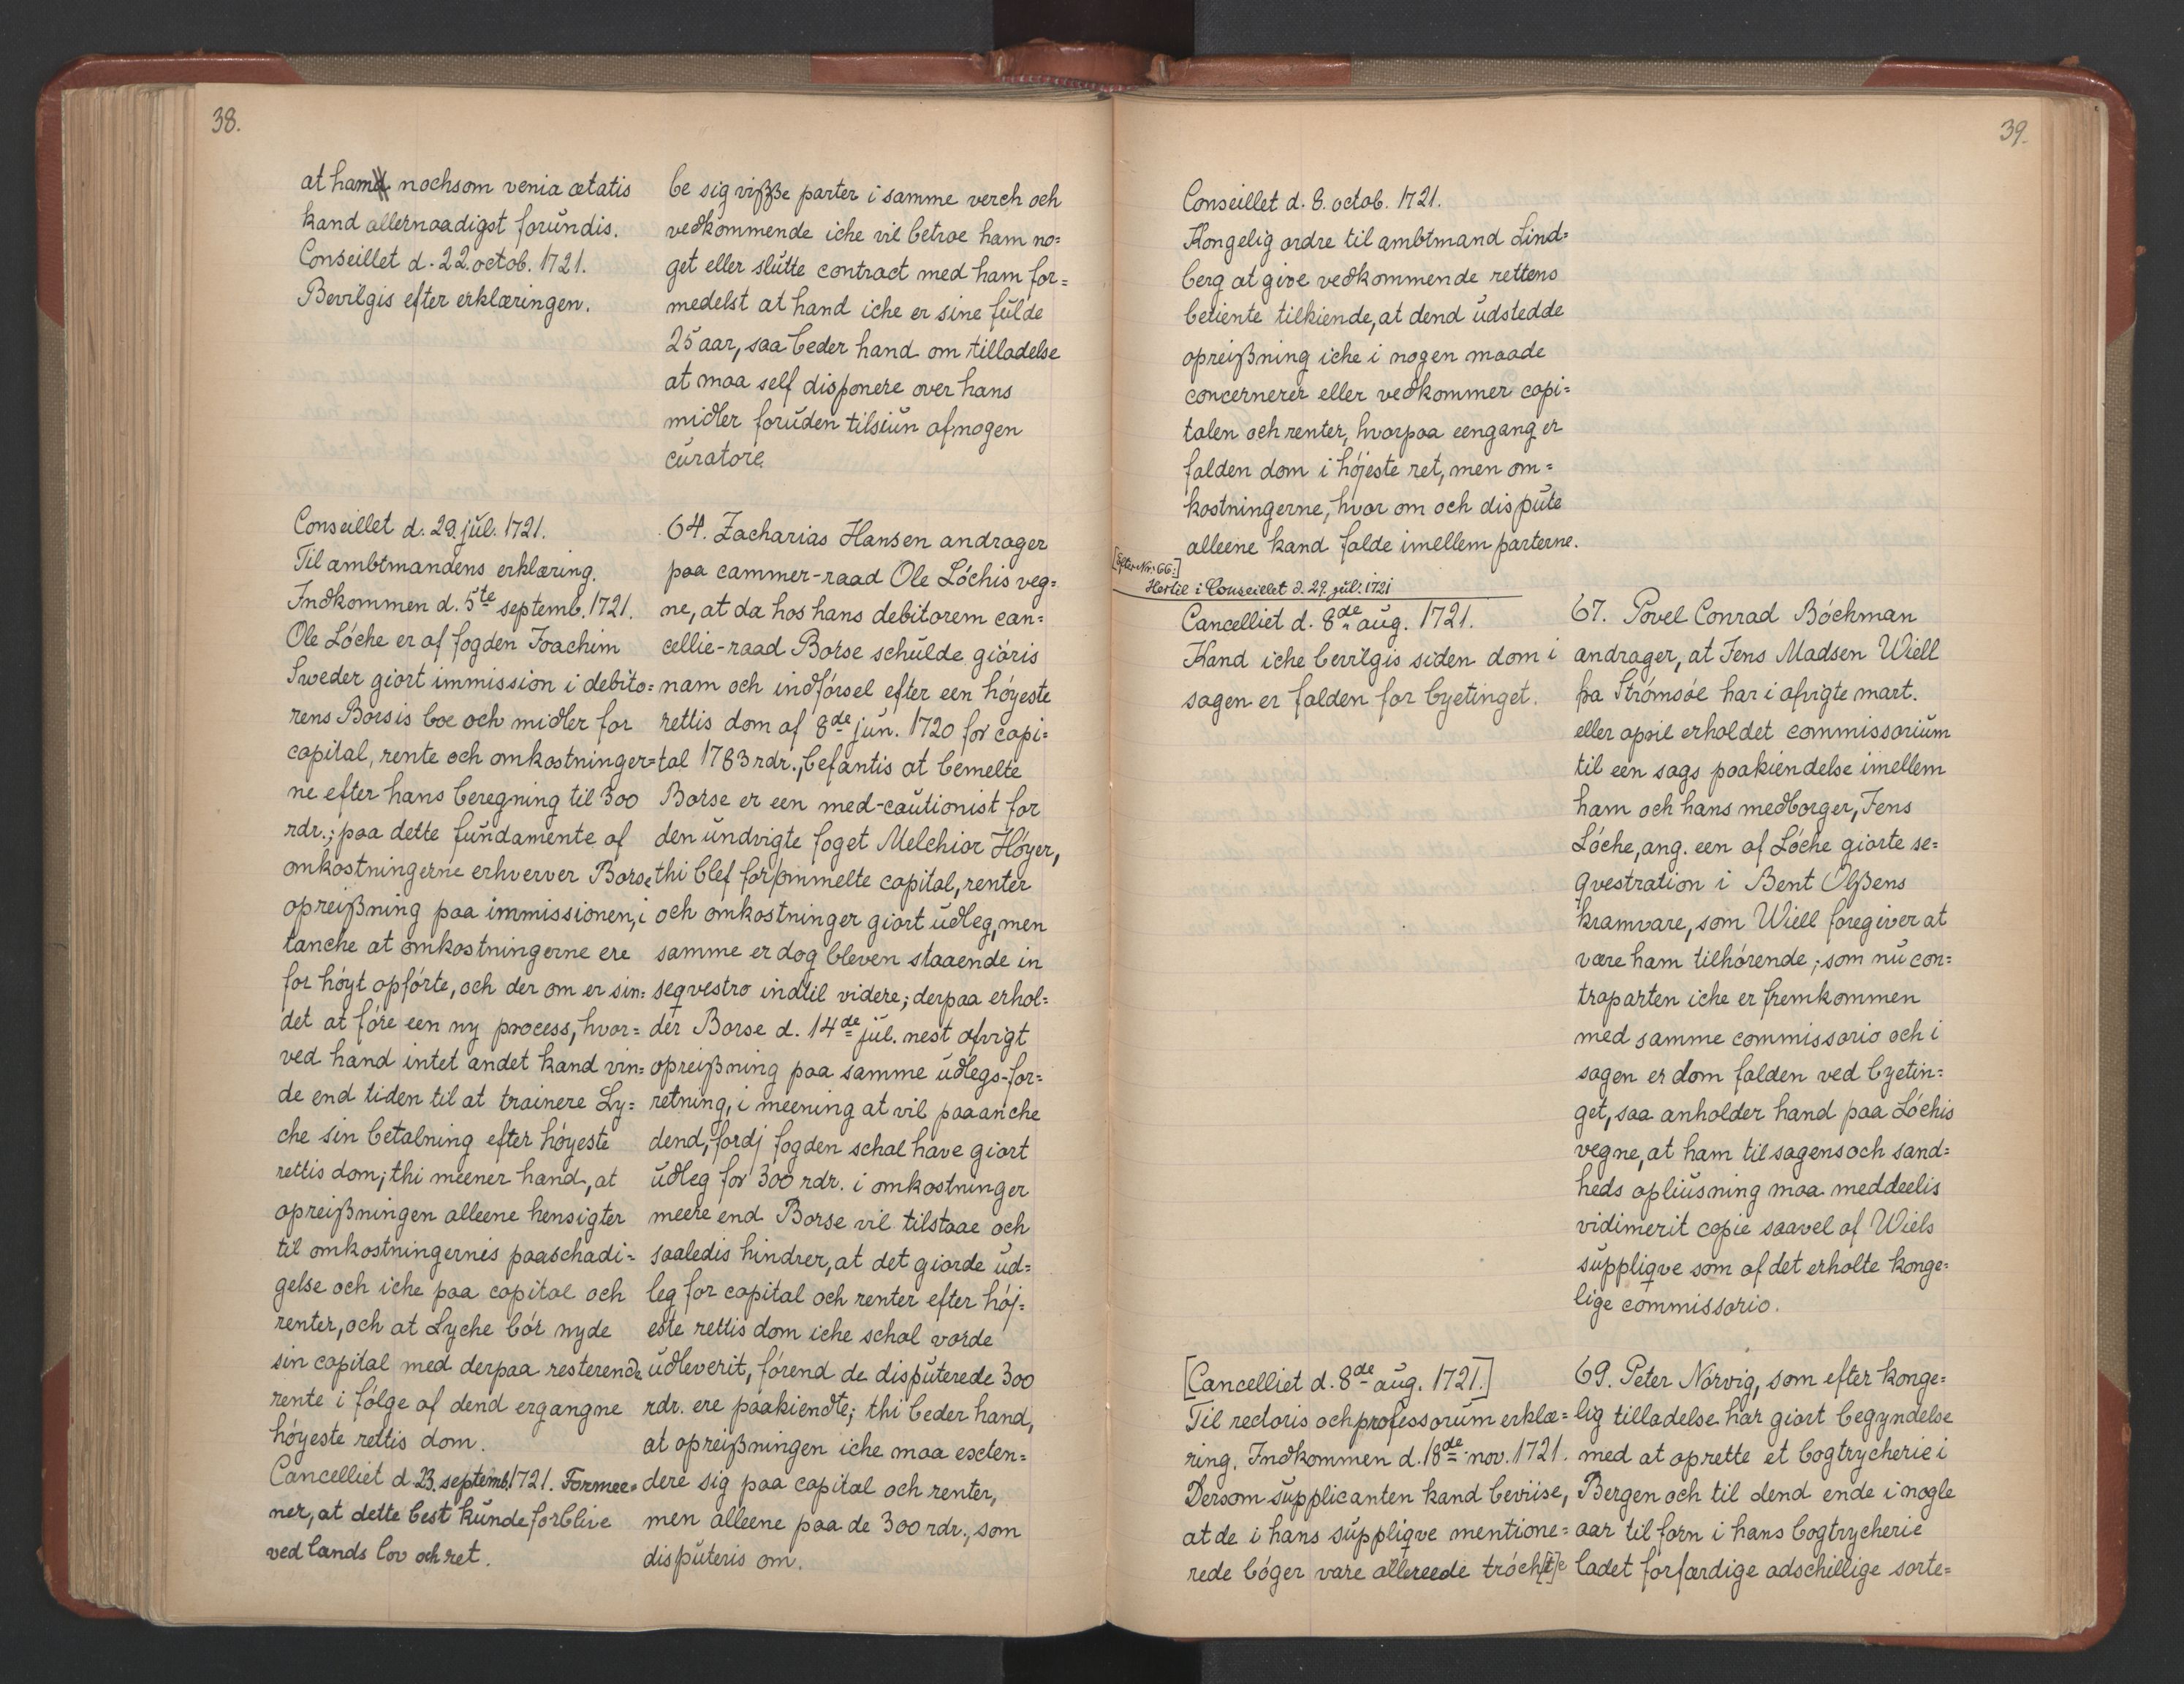 38.
at hamd nochsom venia ætatis
kand allernaadigst forundis.
Conseillet d. 22. octob. 1721.
Bevilgis efter erklæringen.
Conseillet d. 29. jul. 1721.
Til ambtmandens erklæring.
Indkommen d. 5te septemb. 1721.
Ole Lóche er af fogden Joachim
Sweder giort immission i debito=
rens Borsis boe och midler for
capital, rente och omkostninger=
ne efter hans beregning til 300
rdr.; paa dette fundamente af
omkostningerne erhverver Borse
opreißning paa immissionen, i
tanche at omkostningerne ere
for hóyt opfórte, och der om er sin=
det at fóre een ny process, hvor=
ved hand intet andet kand vin=
de end tiden til at trainere Ly=
che sin betalning efter hóyeste
rettis dom; thi meener hand, at
opreißningen alleene hensigter
til omkostningernis paaschadi=
gelse och iche paa capital och
renter, och at Lyche bór nyde
sin capital med derpaa resterende
rente i fólge af dend ergangne
hóyeste rettis dom.
Cancelliet d 23. septemb. 1721. Formee=
ner, at dette best kunde forblive
ved lands lov och ret.
be sig viße parter i samme verch och
vedkommende iche vil betroe ham no=
get eller slutte contract med ham for=
medelst at hand iche er sine fulde
25 aar, saa beder hand om tilladelse
at maa self disponere over hans
midler foruden tilsiun af nogen
curatore.
64. Zacharias Hansen andrager
paa cammer-raad Ole Lóchis veg=
ne, at da hos hans debitorem can=
cellie-raad Borse schulde gióris
nam och indfórsel efter een hóyeste
rettis dom af 8de jun. 1720 for capi=
tal 1783 rdr., befantis at bemelte
Borse er een med-cautionist for
den undvigte foget Melchior Hóyer,
thi blef forommelte capital, renter
och omkostninger giort udleg, men
samme er dog bleven staaende in
seqvestro indtil videre; derpaa erhol=
der Borse d. 14de jul. nest afvigt
opreißning paa samme udlegs-for=
retning, i meening at vil paaanche
dend, fordj fogden schal have giort
udleg for 300 rdr. i omkostninger
meere end Borse vil tilstaae och
saaledis hindrer, at det giorde ud=
leg for capital och renter efter hój=
este rettis dom iche schal vorde
udleverit, fórend de disputerede 300
rdr. ere paakiendte; thi beder hand,
at opreißningen iche maa exten=
dere sig paa capital och renter,
men alleene paa de 300 rdr., som
disputeris om.
39.
Conseillet d. 8. octob. 1721.
Kongelig ordre til ambtmand Lind=
berg at give vedkommende rettens
betiente tilkiende, at dend udstedde
opreißning iche i nogen maade
concernerer eller vedkommer capi=
talen och renter, hvorpaa eengang er
falden dom i hójeste ret, men om=
kostningerne, hvor om och dispute
alleene kand falde imellem parterne.
[Efter Nr. 66:]
Hertil i Conseielet d. 29. jul. 1721
Cancelliet d. 8de aug. 1721.
Kand iche bevilgis siden dom i
sagen er falden for byetinget.
[Cancelliet d. 8de aug. 1721.]
Til rectoris och professorum erklæ=
ring. Indkommen d. 18de nov. 1721.
Dersom supplicanten kand beviise,
at de i hans suppliqve mentione=
rede bóger vare allereede tróch[t]e
67. Povel Conrad Bóchman
andrager, at Jens Madsen Wiell
pa Strómsóe har i afvigte mart.
eller april erholdet commissorium
til een sags paakiendelse imellem
ham och hans medborger, Jens
Lóche, ang. een af Lóche giorte se=
qvestration i Bent Olßens
kramvare, som Wiell foregiver at
være ham tilhórende; som nu con=
traparten iche er fremkommen
med samme commissorio och i
sagen er dom falden ved byetin=
get, saa anholder hand paa Lóchis
vegne, at ham til sagens och sand=
heds opliusning maa meddeelis
vidimerit copie saavel af Wiels
suppliqve som af det erholte konge=
lige commissorio.
69. Peter Nórvig, som efter konge=
lig tilladelse har giort begyndelse
med at oprette et bogtrycherie i
Bergen och til dend ende i nogle
aar til forn i hans bogtrycherie
ladet forfærdige adschillige sorte=